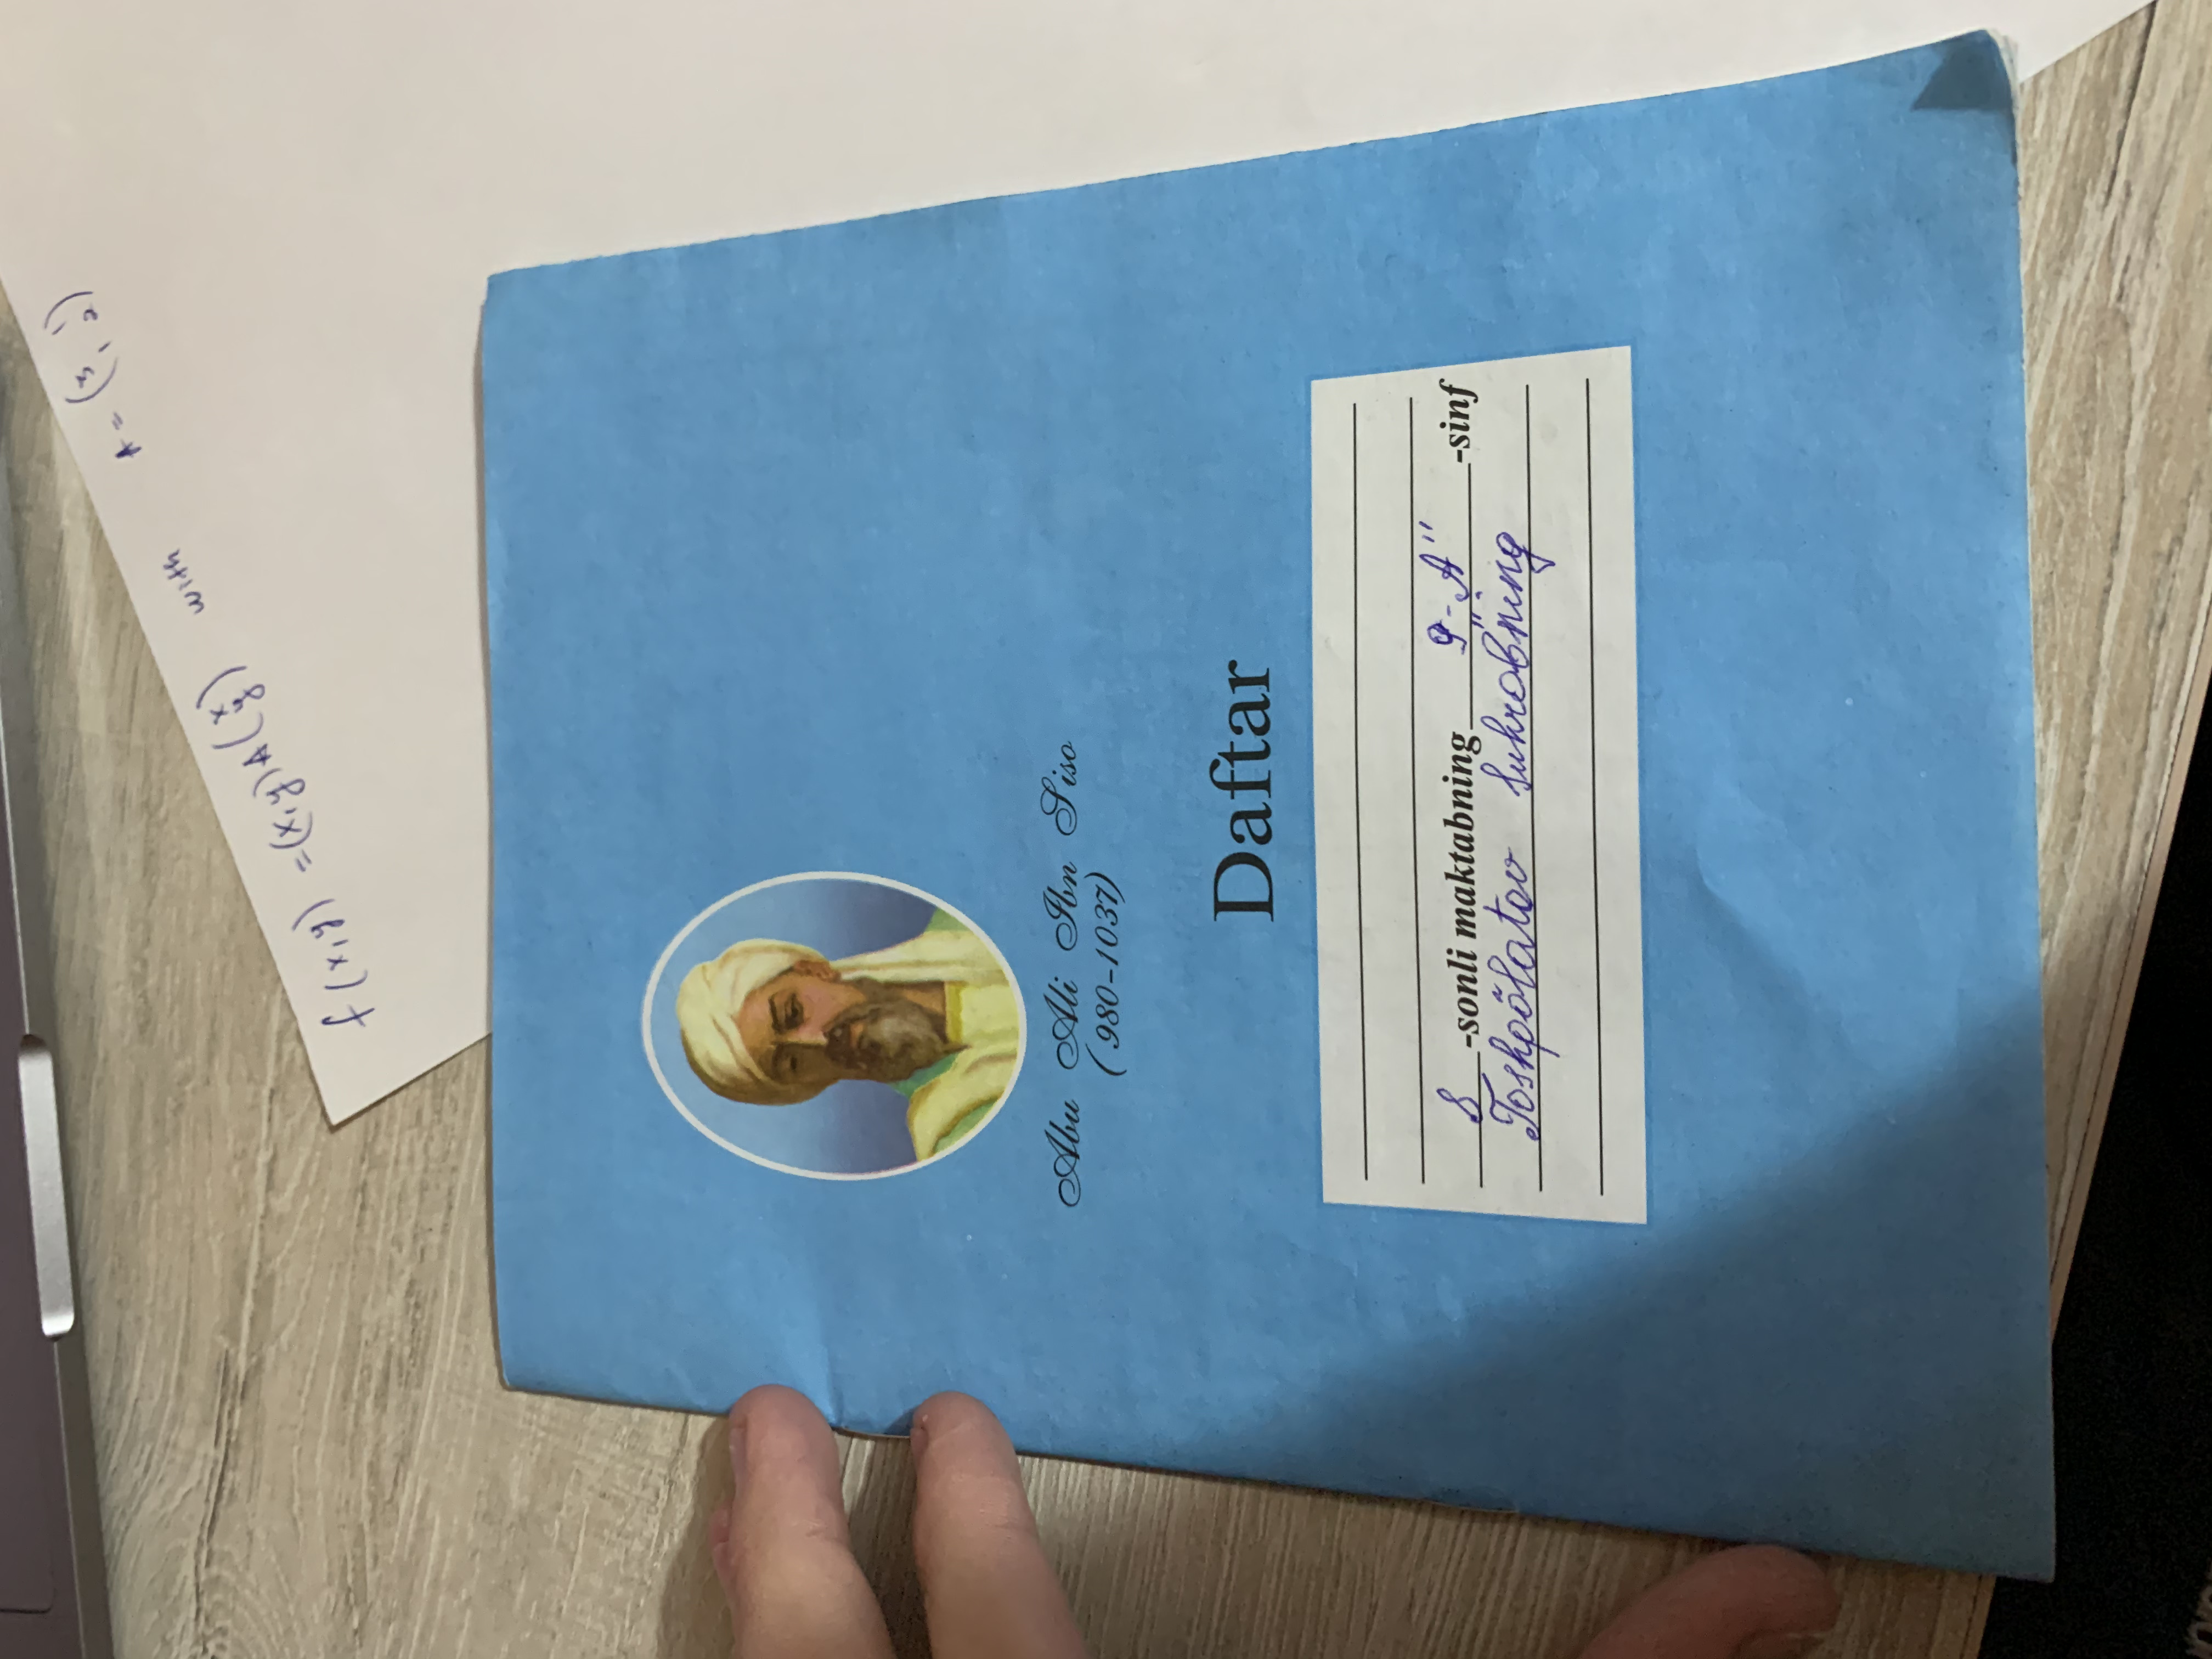 f(x,y) =(x,y)A(x y) with A = (3 1 1 2)
Abu Ali Ibn Sino
(980-1037)
Daftar
8 -sonli maktabning 9-"A" -sinf
Toshpõlatov Suhrobning